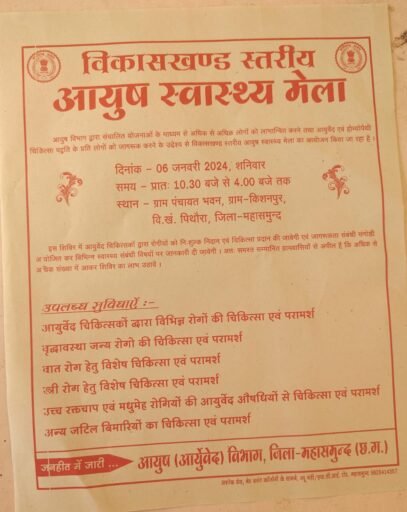 विकासखण्ड स्तरीय
आयुष स्वास्थ्य मेला
आयुष विभाग द्वारा संचालित योजनाओं के माध्यम से अधिक से अधिक लोगों को लाभान्वित करने तथा आयुर्वेद एवं होम्योपैथी
चिकित्सा पद्धति के प्रति लोगों को जागरूक करने के उद्देश्य से विकासखण्ड स्तरीय आयुष स्वास्थ्य मेला का आयोजन किया जा रहा है।
दिनांक - 06 जनवरी 2024, शनिवार
समय - प्रातः 10.30 बजे से 4.00 बजे तक
स्थान - ग्राम पंचायत भवन, ग्राम-किशनपुर,
वि.खं. पिथौरा, जिला-महासमुन्द
इस शिविर में आयुर्वेद चिकित्सकों द्वारा रोगियों को निःशुल्क निदान एवं चिकित्सा प्रदान की जायेगी एवं जागरूकता संबंधी संगोष्ठी
आयोजित कर विभिन्न स्वास्थ्य संबंधी विषयों पर जानकारी दी जायेगी। अतः समस्त सम्मानित ग्रामवासियों से अपील है कि अधिक से
अधिक संख्या में आकर शिविर का लाभ उठावें।
उपलब्ध सुविधाएँ :-
आयुर्वेद चिकित्सकों द्वारा विभिन्न रोगों की चिकित्सा एवं परामर्श
वृद्धावस्था जन्य रोगो की चिकित्सा एवं परामर्श
वात रोग हेतु विशेष चिकित्सा एवं परामर्श
स्त्री रोग हेतु विशेष चिकित्सा एवं परामर्श
उच्च रक्तचाप एवं मधुमेह रोगियों की आयुर्वेद औषधियों से चिकित्सा एवं परामर्श
अन्य जटिल बिमारियों का चिकित्सा एवं परामर्श
जनहित में जारी ... आयुष (आर्युवेद) विभाग, जिला-महासमुन्द (छ.ग.)